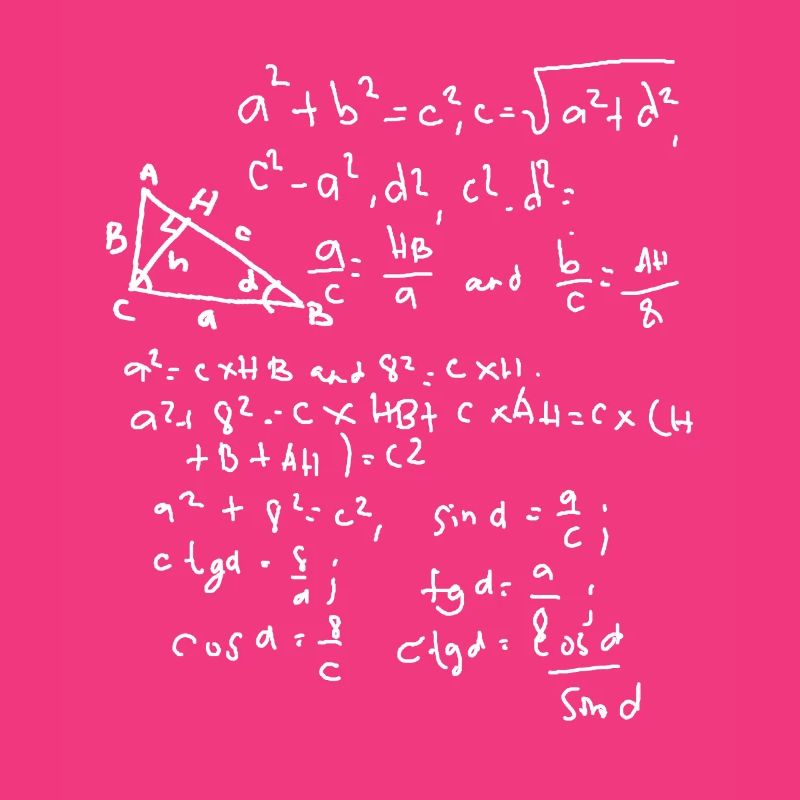 a² + b² = c², c = √a² + d²,
c² - a², d2, c². d² =
A
H
B
c
h
d
C
a
B
a/c = HB/a and b/c = AH/8
a² = c × HB and 8² = c × H.
a² + 8² = c × HB + c × AH = c × (H
+ B + AH) = c2
a² + 8² = c², sin d = a/c;
ctgd = 8/a; tgd = a/8;
cos d = 8/c ctgd = cos d/sin d